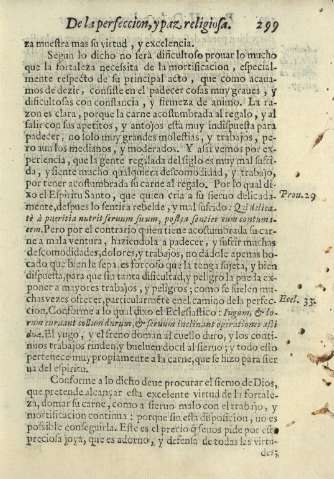 De la perfeccion, y paz religiosa. 299
za muestra mas su virtud, y excelencia.
Segun lo dicho no serà dificultoso prouar lo mucho
que la fortaleza necessita de la mortificacion, especial-
mente respecto de su principal acto, que como acaua-
mos de dezir, consiste en el padecer cosas muy graues, y
dificultosas con constancia, y firmeza de animo. La ra-
zon es clara, porque la carne acostumbrada al regalo, y al
salir con sus apetitos, y antojos esta muy indispuesta para
padecer, no solo muy grandes molestias, y trabajos, pe-
ro aun los medianos, y moderados. Y assi vemos por ex-
periencia, que la gente regalada del siglo es muy mal sufri-
da, y siente mucho qualquiera descomodidad, y trabajo,
por tener acostumbrada su carne al regalo. Por lo qual di-
xo el Espiritu Santo, que quien cria a su sieruo delicada-
mente, despues lo sentirà rebelde, y mal sufrido: Qui delica-
Prou. 29
tè à pueritia nutrit seruum suum, postea sentiet eum contuma-
cem. Pero por el contrario quien tiene acostumbrada su car-
ne a mala ventura, haziendola a padecer, y sufrir muchas
descomodidades, dolores, y trabajos, no dadole apenas bo-
cado que bien le sepa, es forçoso que la tenga sujeta, y bien
dispuesta, para que sin tanta dificultad, y peligro la pueda ex-
poner a mayores trabajos, y peligros; como se suelen mu-
chas vezes ofrecer, particularmẽte en el camino de la perfec-
cion. Conforme a lo qual dixo el Eclesiastico: Iugum, & lo-
Eccl. 33.
rum curuant collum durum, & seruum inclinant operationes assi
duæ. El yugo, y el freno doman al cuello duro, y los conti-
nuos trabajos rinden, y bueluen docil al sieruo; y todo esto
pertenece muy propiamente a la carne, que se hizo para sier
ua del espiritu.
Conforme a lo dicho deue procurar el sieruo de Dios,
que pretende alcançar esta excelente virtud de la fortale-
za, domar su carne, como a sieruo malo con el trabajo, y
mortificacion continua: porque sin esta disposicion, no es
possible conseguirla. Este es el precio q̃ se nos pide por esta
preciosa joya, que es adorno, y defensa de todas las virtu-
des;